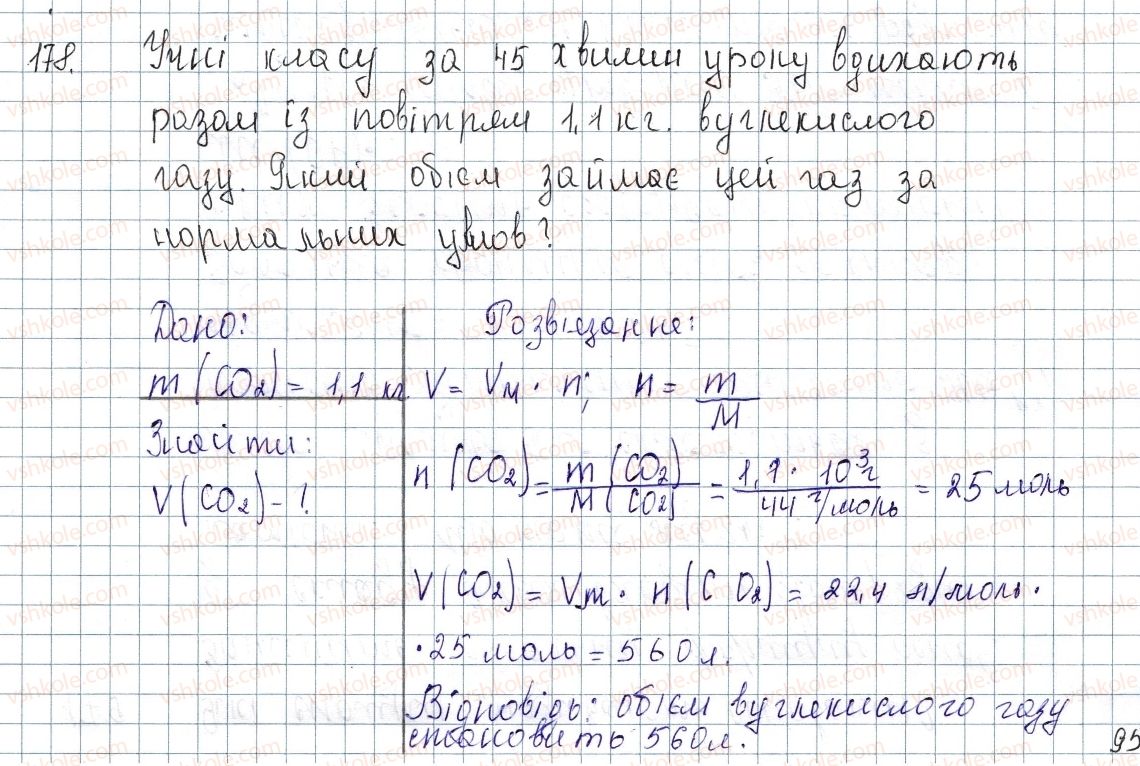 178. Учні класу за 45 хвилин уроку вдихають
разом із повітрям 1,1 кг. вуглекислого
газу. Який обієм займає цей газ за
нормальних умов?
Дано:
m (CO₂) = 1,1 кг.
Знайти:
V (CO₂) - !
Розвіязання:
V = Vм · n; n = m/M
n (CO₂) = m (CO₂)/M (CO₂) = 1,1 · 10³г/44 г/моль = 25 моль
V (CO₂) = Vm · n (CO₂) = 22,4 л/моль ·
· 25 моль = 560 л.
Відповідь: обієм вуглекислого газу
становить 560 л.
95